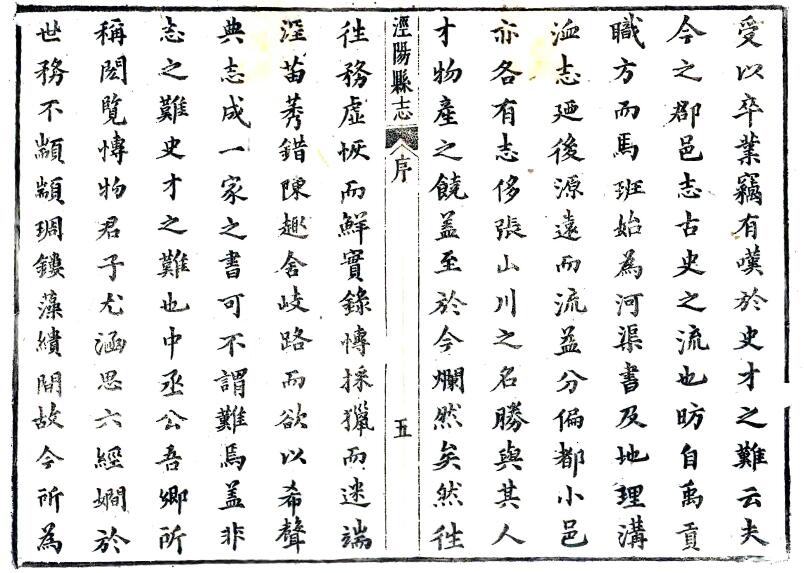 受以卒業竊有嘆於史才之難云夫
今之郡邑志古史之流也昉自禹貢
職方而馬班始為河渠書及地理溝
洫志廼後源遠而流益分偏都小邑
亦各有志侈張山川之名勝與其人
才物產之饒蓋至於今爛然矣然往
涇陽縣志 序 五
往務虛恢而鮮實錄愽採獵而迷端
涯苗莠錯陳趣舍岐路而欲以希聲
典志成一家之書可不謂難焉盖非
志之難史才之難也中丞公吾鄉所
稱閎覽愽物君子尤涵思六經嫺於
世務不顓顓琱鏤藻繢閒故今所為